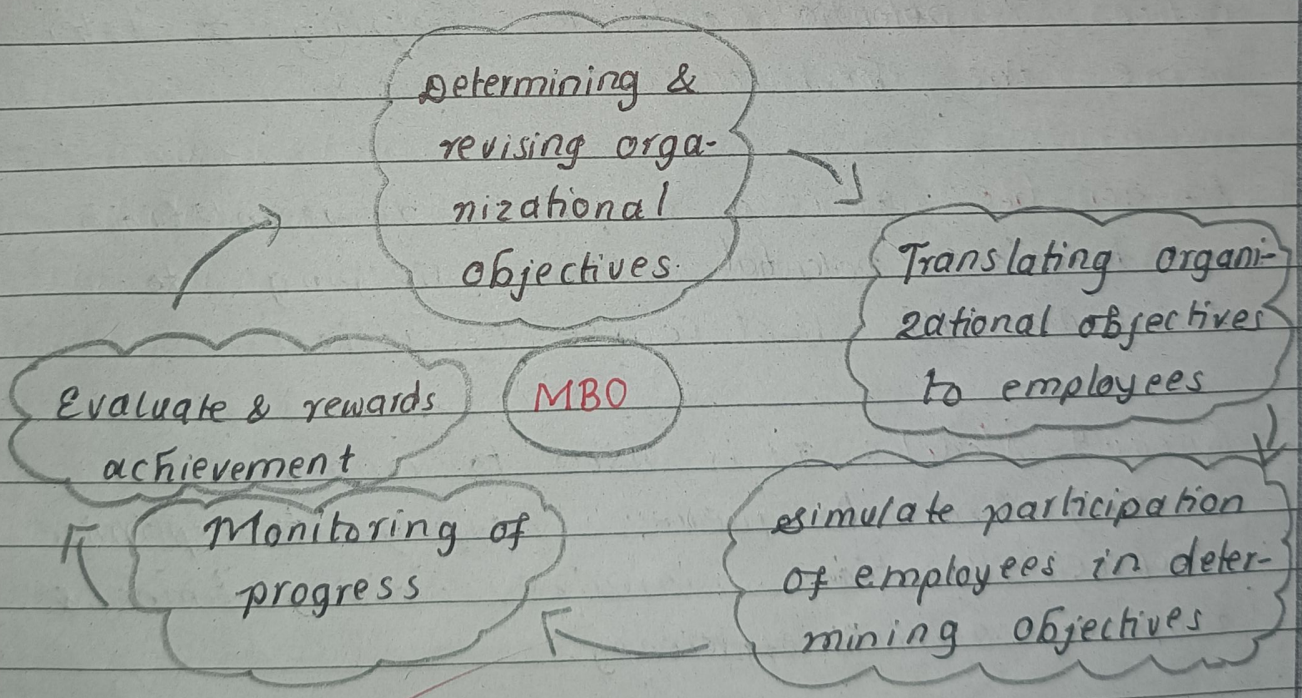 Determining &
revising orga-
nizational
objectives.
Translating organi-
zational objectives
to employees
esimulate participation
of employees in deter-
mining objectives
Monitoring of
progress
Evaluate & rewards
achievement
MBO